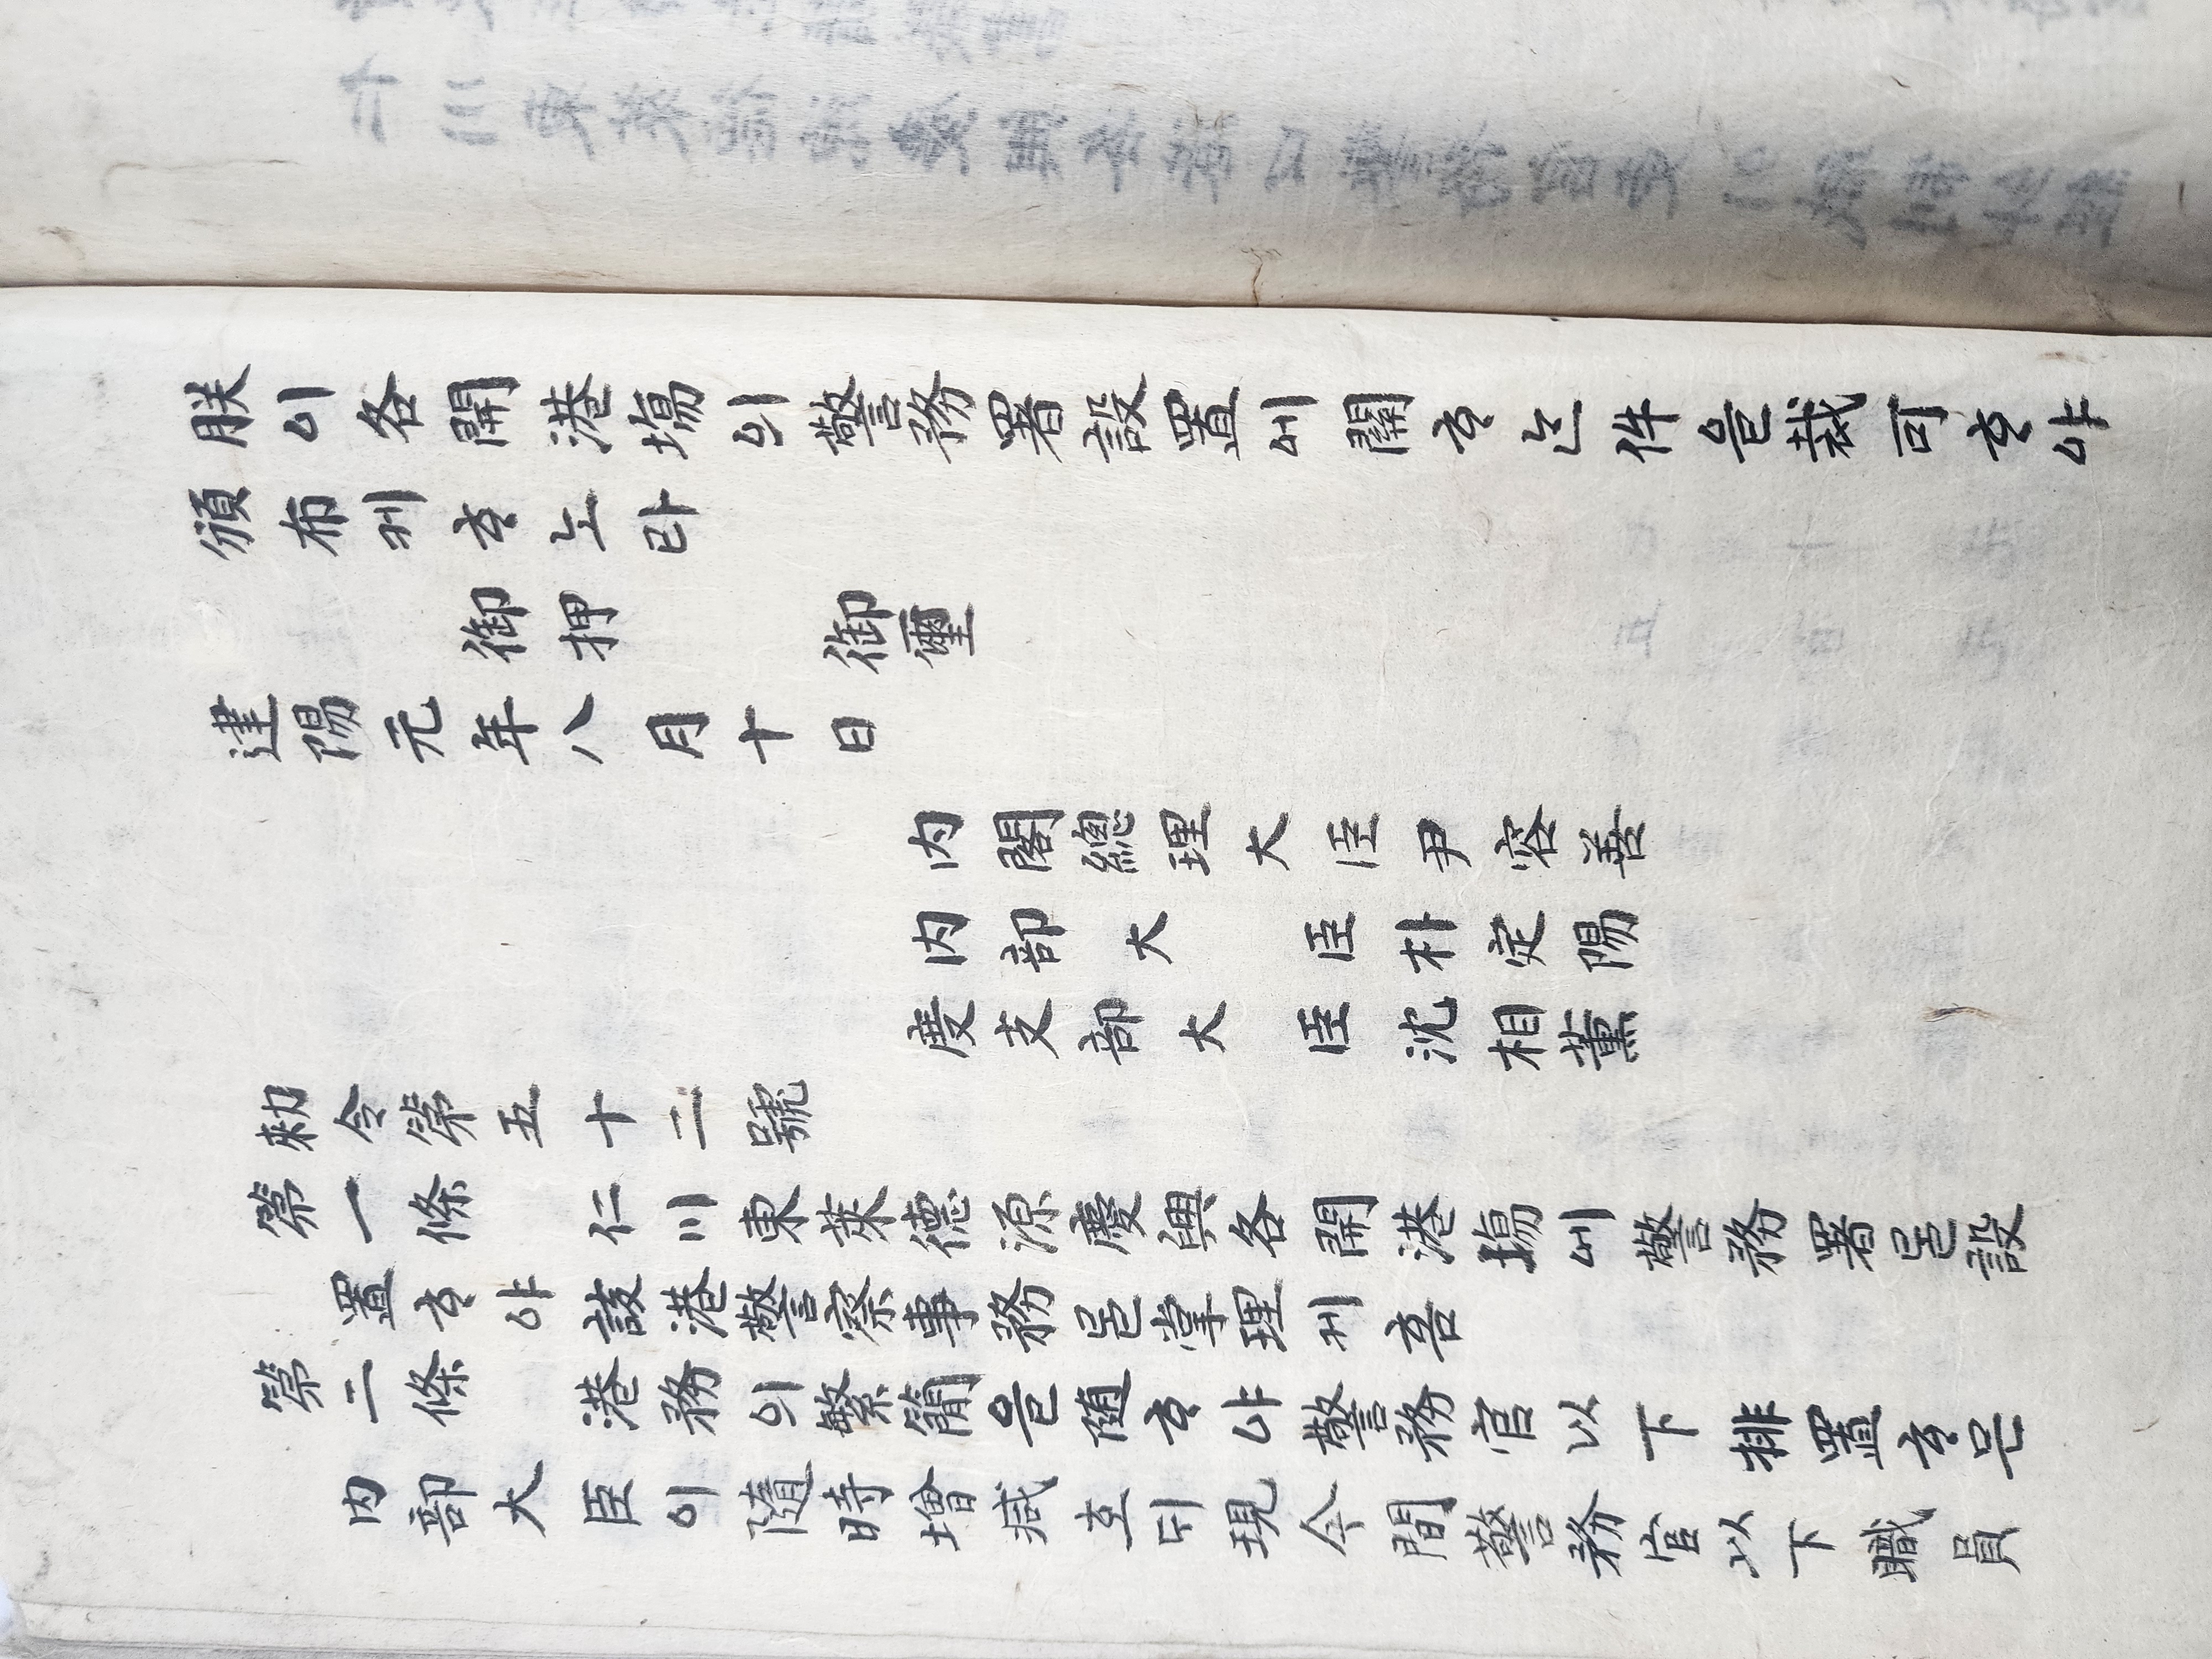 朕이各開港場의警務署設置에關ᄒᆞᄂᆞᆫ件을裁可ᄒᆞ야
頒布케ᄒᆞ노라
御押 御璽
建陽元年八月十日
内閣總理大臣尹容善
内部大臣朴定陽
度支部大臣沈相薰
勅令第五十二號
第一條 仁川東萊德源慶興各開港場에警務署ᄅᆞᆯ設
置ᄒᆞ야該港警察事務ᄅᆞᆯ掌理케홈
第二條 港務의繁簡을随ᄒᆞ야警務官以下排置ᄒᆞ믄
内部大臣이隨時增減호ᄃᆡ現今間警務官以下職員